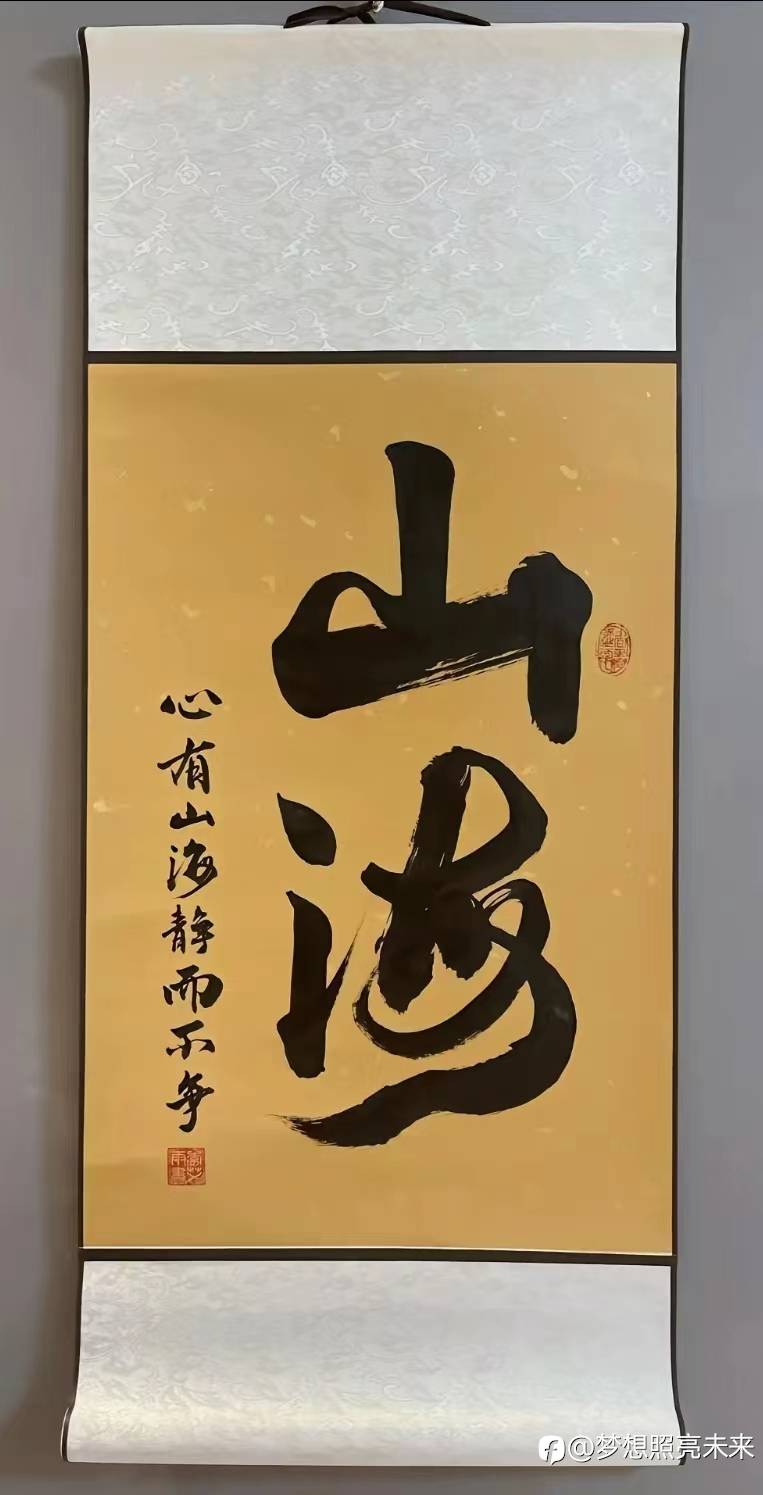 山海
心有山海静而不争
@梦想照亮未来